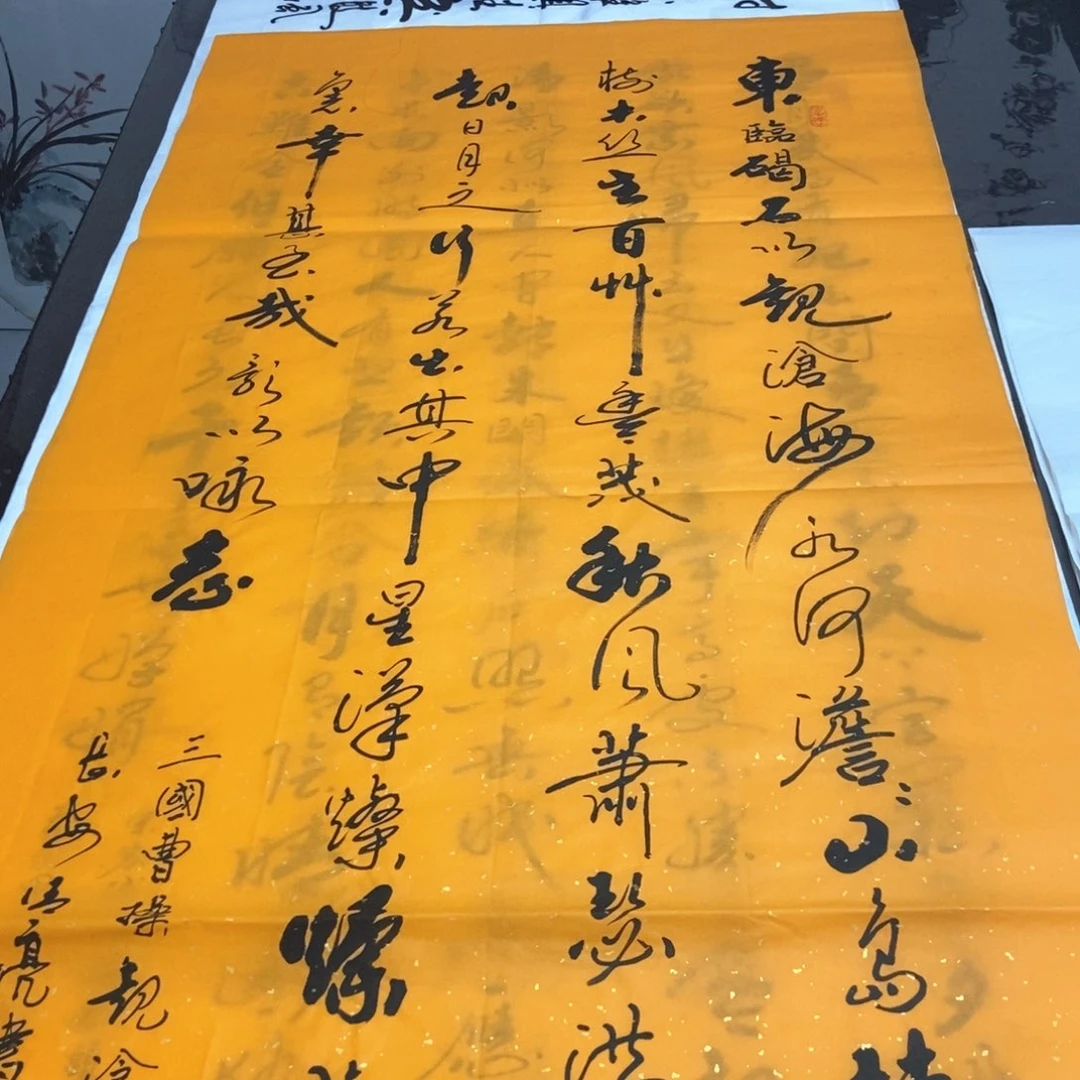 東臨碣石以觀滄海水何澹〻山島
樹木丛生百艸豐茂秋風蕭瑟洪
起日月之行若出其中星漢燦爛
裏幸甚至哉歌以咏志
三國曹操觀滄
長安亮書